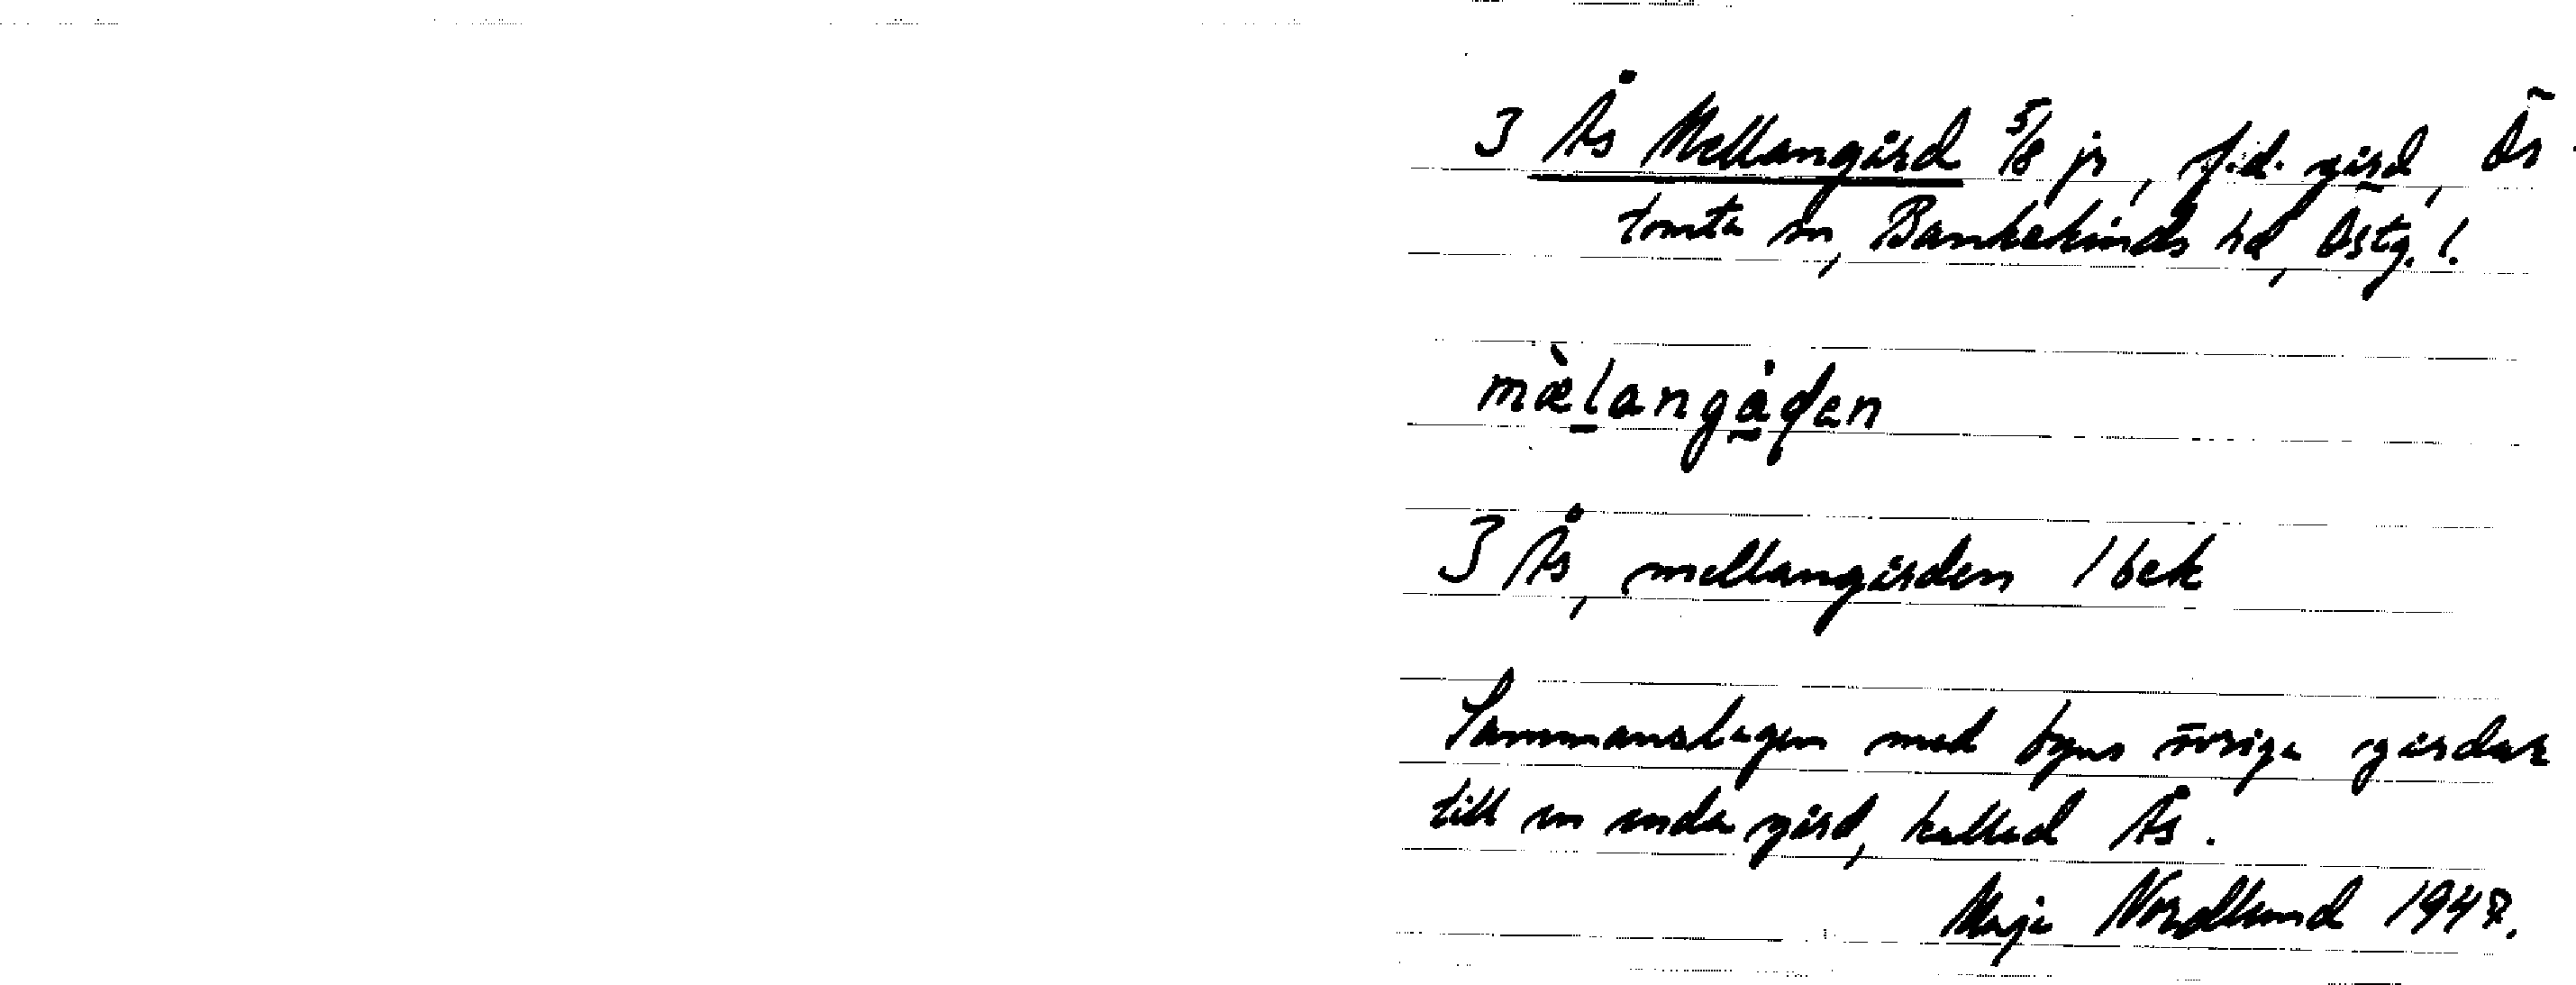 3 Ås Mellangård 5/8 jr, f.d. gård, Ös-
tomta sn, Bankekinds hd, Östg. l.
mælangåḍan
3 Ås, mellangården 1 bek
Sammanslagen med byns övriga gårdar
till en enda gård, kallad Ås.
Maja Nordlund 1947.